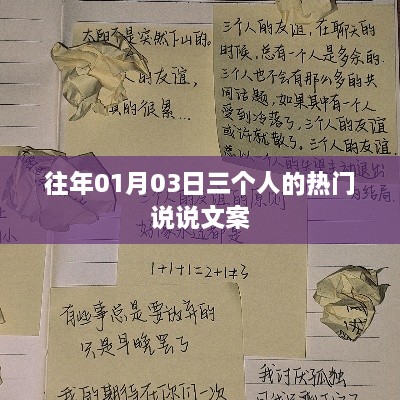 太阳不是突然下山的。
人的友谊,
真的很累...
三个人的友谊,在聊天的
时候,总有一个人是多余的.
三个人也不会有那么多的共
同话题,如果其中有一个人
受到冷落了,三个人的友谊
或许就散了。
往年01月03日三个人的热门
说说文案
人的友谊的原则
1+1+1=2+1≠3
有些事总是要放弃的
只是早晚罢了
我的期待在你们一次
我讨厌孤独